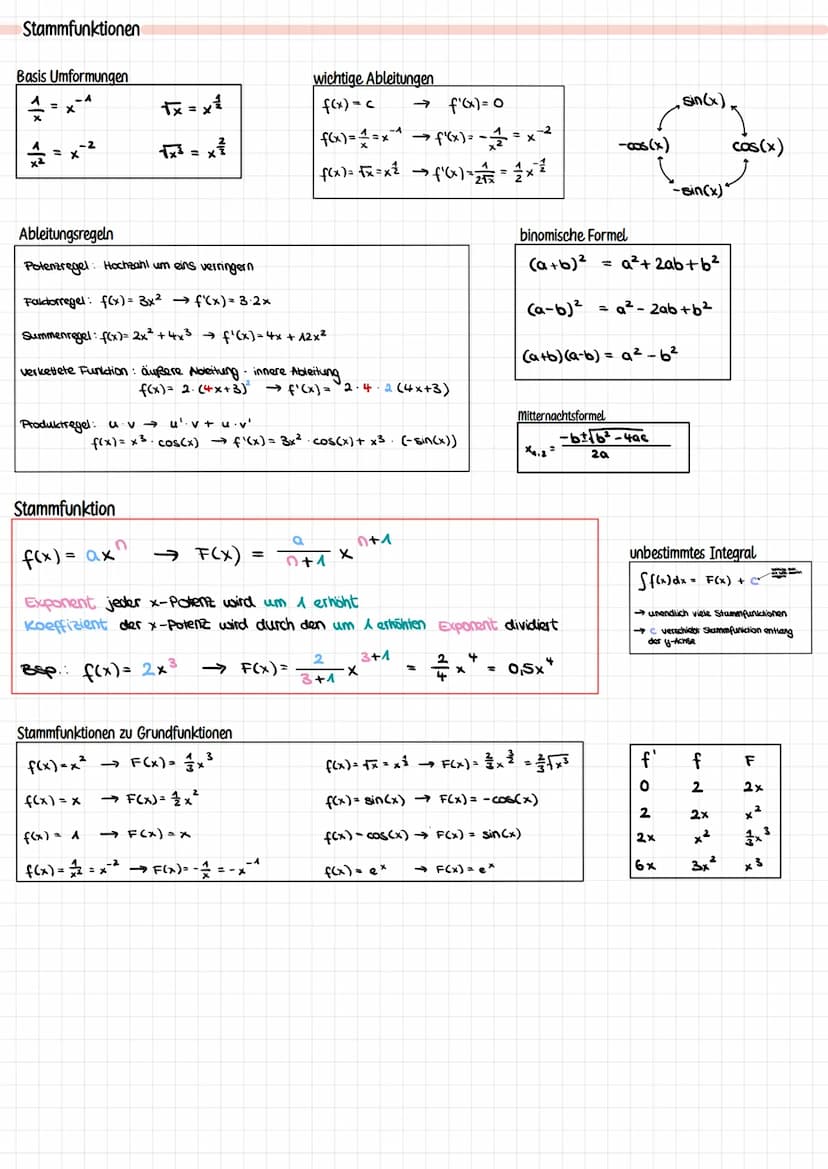 Stammfunktionen
Basis Umformungen
1/x = x^-1    √x = x^1/2
1/x² = x^-2    √x³ = x^3/2
wichtige Ableitungen
f(x) = c → f'(x) = 0
f(x) = 1/x = x^-1 → f'(x) = -1/x² = x^-2
f(x) = √x = x^1/2 → f'(x) = 1/2√x = 1/2 x^-1/2
sin(x)
-cos(x)    cos(x)
-sin(x)
Ableitungsregeln
Potenzregel: Hochzahl um eins verringern
Faktorregel: f(x) = 3x² → f'(x) = 3·2x
Summenregel: f(x) = 2x² + 4x³ → f'(x) = 4x + 12x²
verkettete Funktion: äußere Ableitung · innere Ableitung
f(x) = 2·(4x+3)² → f'(x) = 2·4·2(4x+3)
Produktregel: u·v → u'·v + u·v'
f(x) = x³·cos(x) → f'(x) = 3x²·cos(x) + x³·(-sin(x))
binomische Formel
(a+b)² = a² + 2ab + b²
(a-b)² = a² - 2ab + b²
(a+b)(a-b) = a² - b²
Mitternachtsformel
x₁,₂ = (-b ± √b² - 4ac)/2a
Stammfunktion
f(x) = ax^n → F(x) = a/(n+1) x^n+1
Exponent jeder x-Potenz wird um 1 erhöht
Koeffizient der x-Potenz wird durch den um 1 erhöhten Exponent dividiert
Bsp.: f(x) = 2x³ → F(x) = 2/(3+1) x^3+1 = 2/4 x⁴ = 0,5x⁴
unbestimmtes Integral
∫f(x)dx = F(x) + c
→ unendlich viele Stammfunktionen
→ c verschiebt Stammfunktion entlang
der y-Achse
Stammfunktionen zu Grundfunktionen
f(x) = x² → F(x) = 1/3 x³
f(x) = x → F(x) = 1/2 x²
f(x) = 1 → F(x) = x
f(x) = 1/x² = x^-2 → F(x) = -1/x = -x^-1
f(x) = √x = x^1/2 → F(x) = 2/3 x^3/2 = 2/3 √x³
f(x) = sin(x) → F(x) = -cos(x)
f(x) = cos(x) → F(x) = sin(x)
f(x) = e^x → F(x) = e^x
f'    f    F
0    2    2x
2    2x    x²
2x    x²    1/3 x³
6x    3x²    x³